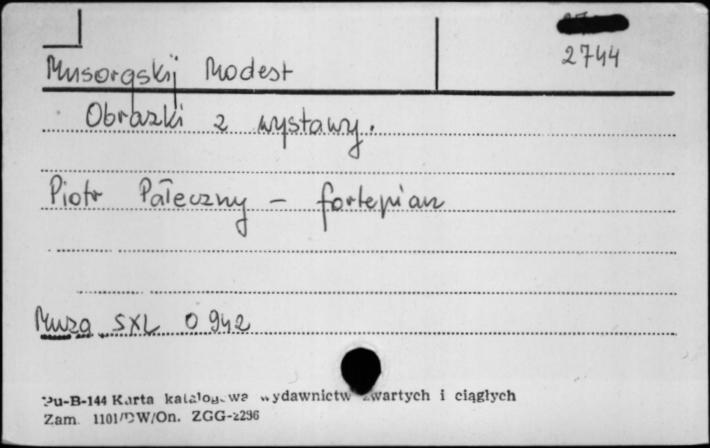 2744
Musorgskij Modest
Obrazki z wystawy.
Piotr Pałeczny - fortepian
Muza SXL 0942
Pu-B-144 Karta katalogowa wydawnictw zwartych i ciągłych
Zam. 1101/DW/On. ZGG-2296